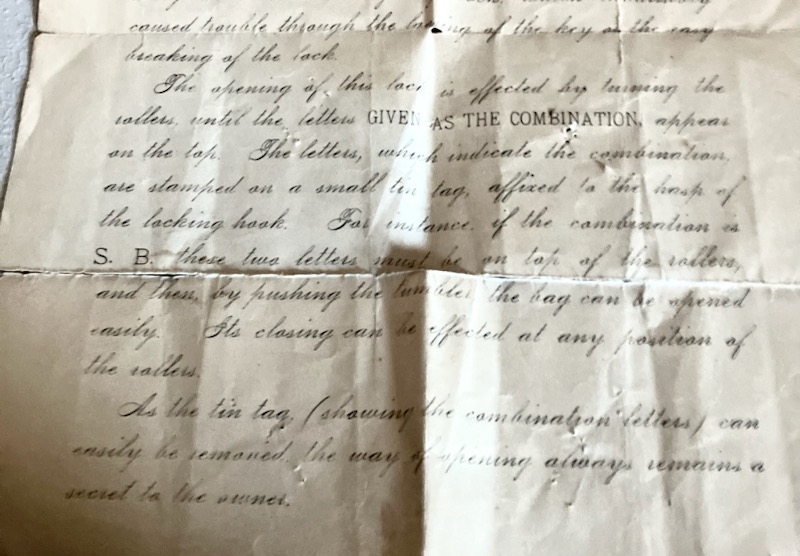 caused trouble through the losing of the key or the easy
breaking of the lock.
The opening of this lock is effected by turning the
rollers, until the letters GIVEN AS THE COMBINATION, appear
on the top. The letters, which indicate the combination,
are stamped on a small tin tag, affixed to the hasp of
the locking hook. For instance, if the combination is
S. B. these two letters must be on top of the rollers,
and then, by pushing the tumbler the bag can be opened
easily. Its closing can be effected at any position of
the rollers.
As the tin tag, (showing the combination letters) can
easily be removed, the way of opening always remains a
secret to the owner.